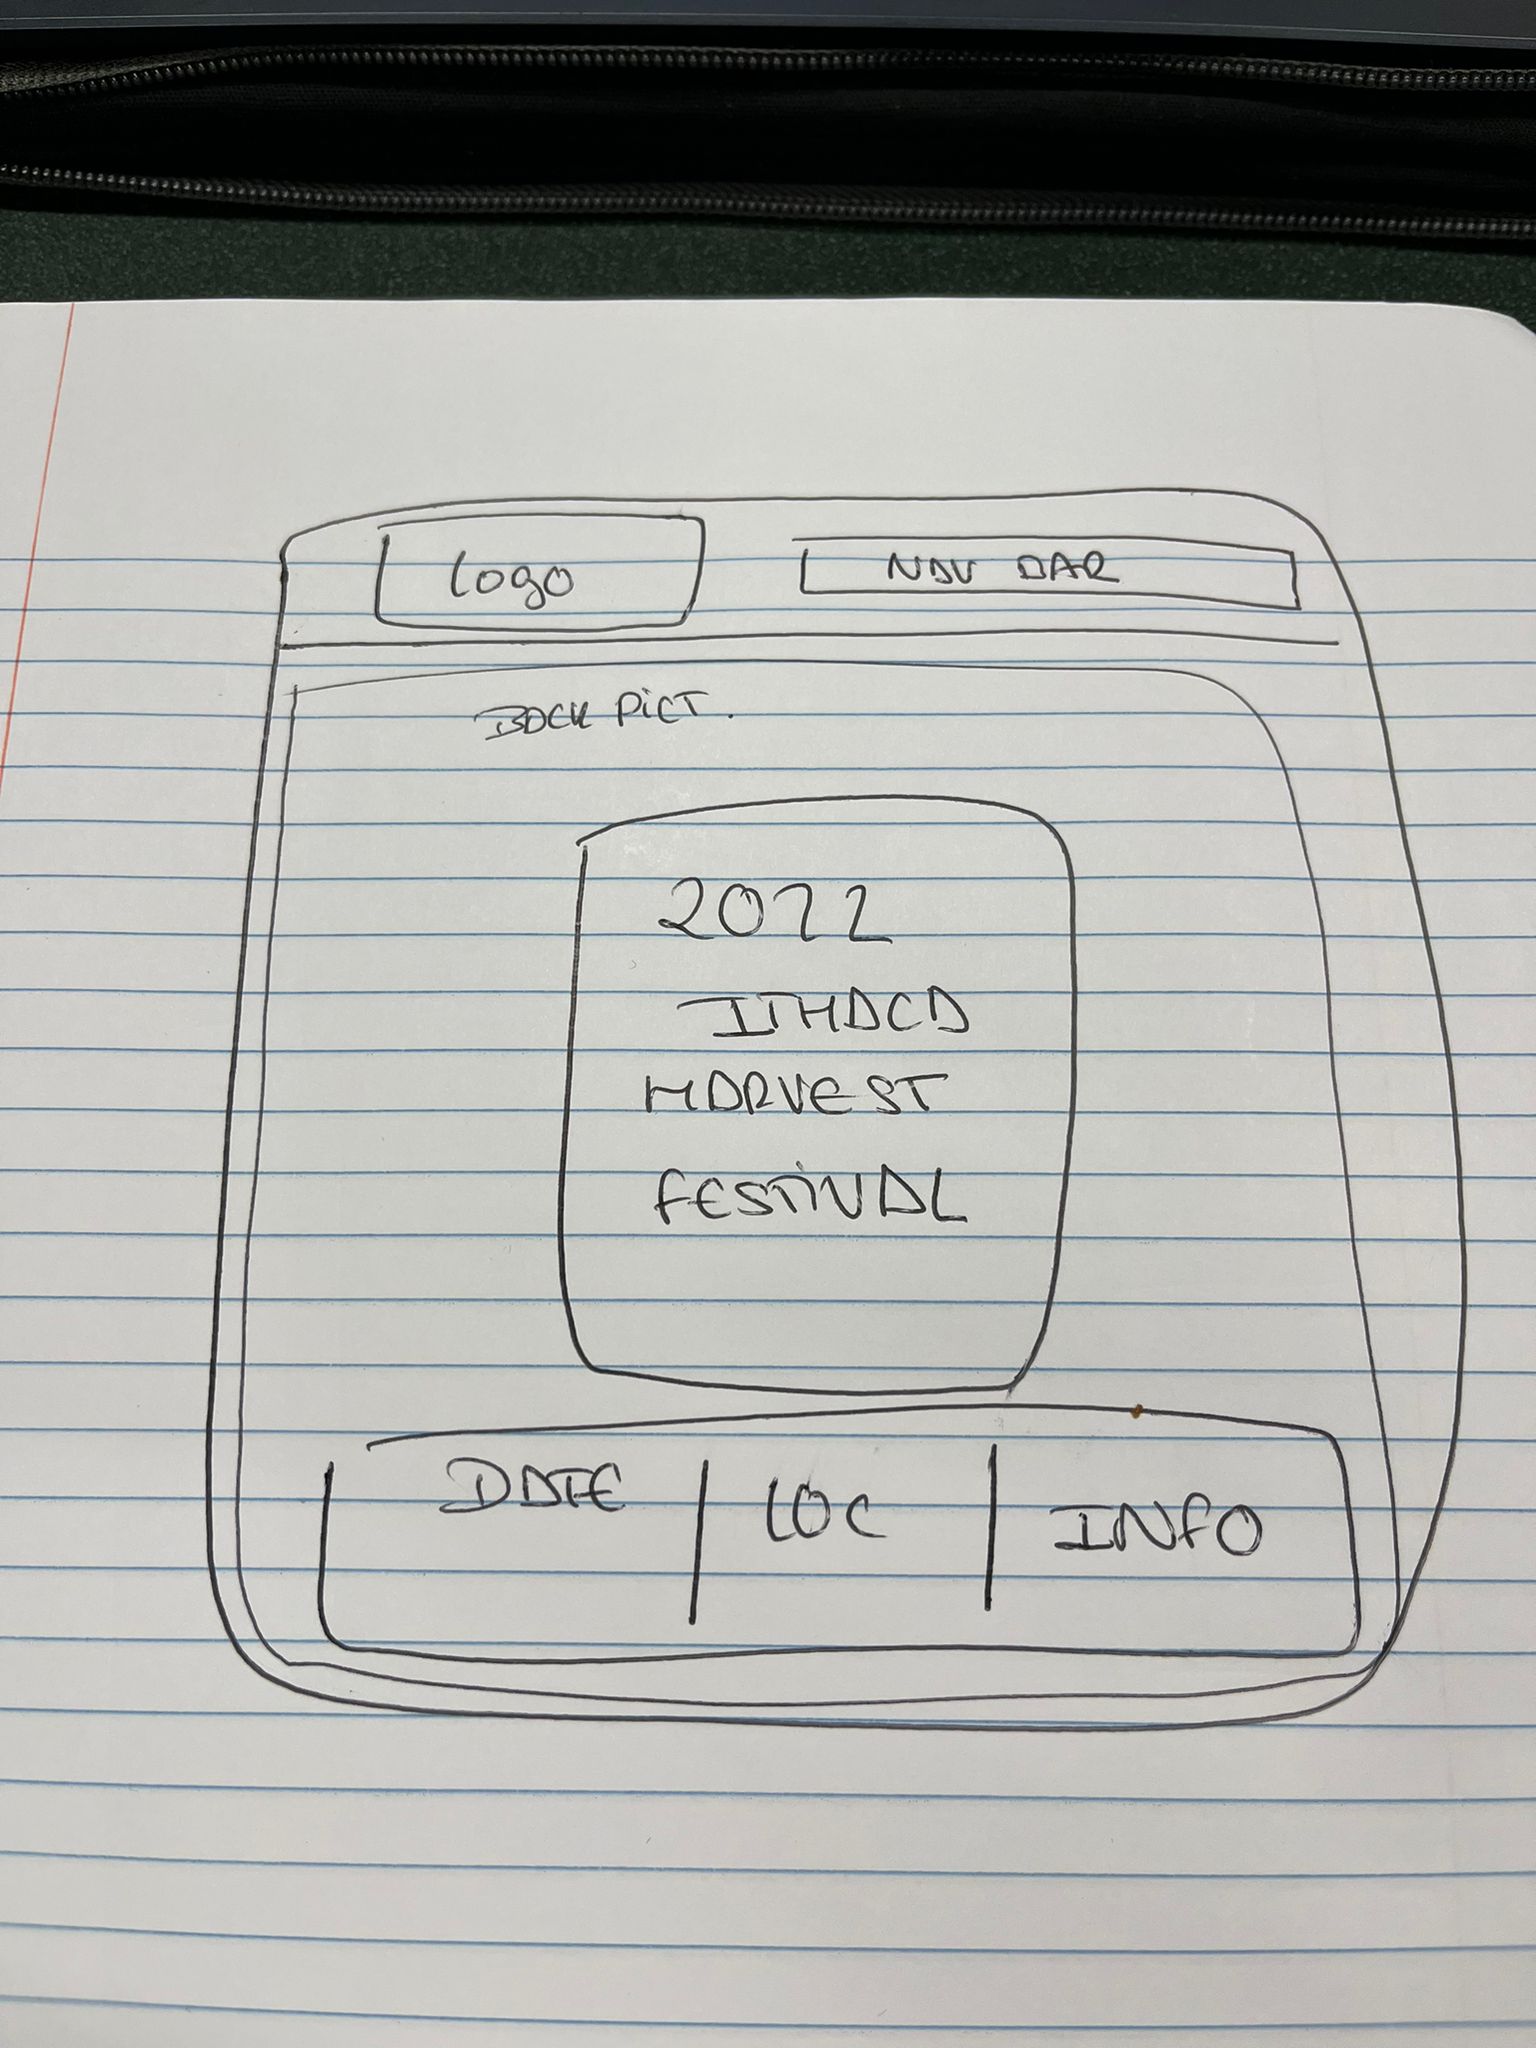 Logo
NAV BAR
BACK PICT.
2022
ITHACA
HARVEST
FESTIVAL
DATE
LOC
INFO